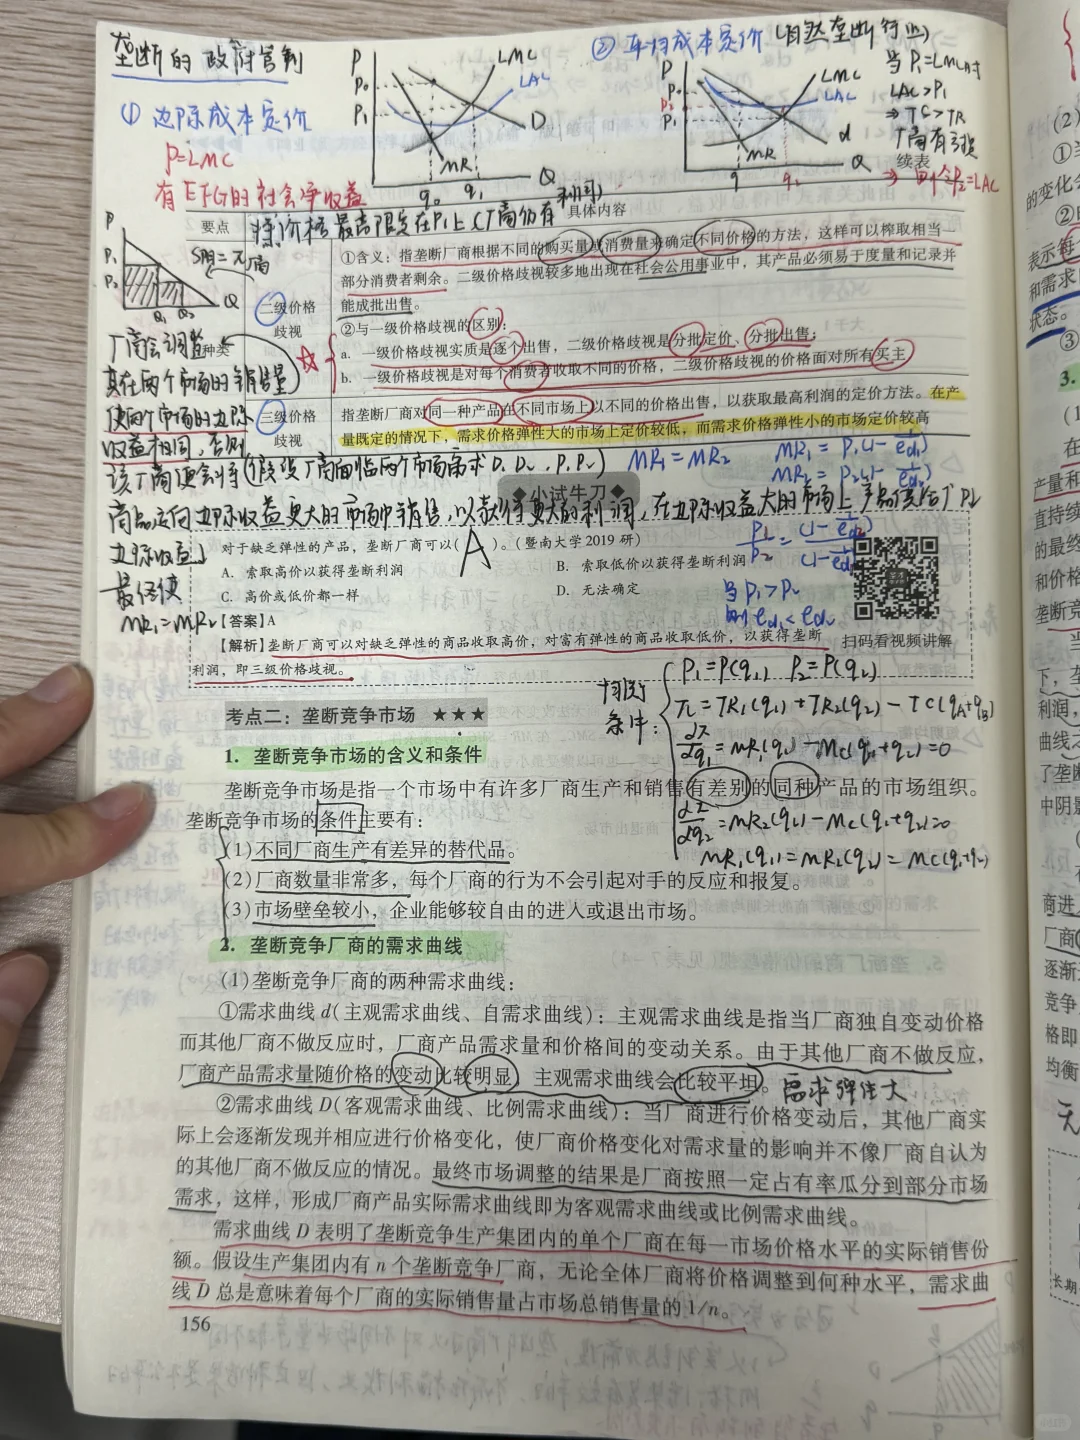 垄断的政府管制
① 边际成本定价
P=LMC
有EFG的社会净收益
P
P₀
P₁
LMC
LAC
D
MR
q₀ q₁ Q
② 平均成本定价(自然垄断行业)
P
P₀
P₂
P₁
LMC
LAC
d
MR
q q₁ Q
当P₁=LMC时
LAC>P₁
⇒ TC>TR
厂商有亏损
⇒ P₂=LAC
将价格最高限定在P₁上(厂商仍有利润)
续表
要点
具体内容
种类
二级价格
歧视
①含义：指垄断厂商根据不同的购买量或消费量来确定不同价格的方法，这样可以榨取相当一
部分消费者剩余。二级价格歧视较多地出现在社会公用事业中，其产品必须易于度量和记录并
能成批出售。
②与一级价格歧视的区别：
a. 一级价格歧视实质是逐个出售，二级价格歧视是分批定价、分批出售；
b. 一级价格歧视是对每个消费者收取不同的价格，二级价格歧视的价格面对所有买主
三级价格
歧视
指垄断厂商对同一种产品在不同市场上以不同的价格出售，以获取最高利润的定价方法。在产
量既定的情况下，需求价格弹性大的市场上定价较低，而需求价格弹性小的市场定价较高
P
P₁
P₂
Q₁ Q₂ Q
厂商会调整
其在两个市场的销售量
使两个市场的边际
收益相同，否则
该厂商便会将
商品定向边际收益更大的市场中销售，以获得更大的利润，在边际收益大的市场上
边际收益↓
最终使
MR₁=MR₂
(假设厂商面临两个市场需求D₁D₂，P₁P₂)
MR₁=MR₂
当P₁>P₂
则ed₁<ed₂
小试牛刀
对于缺乏弹性的产品，垄断厂商可以( A )。(暨南大学 2019 研)
A. 索取高价以获得垄断利润
B. 索取低价以获得垄断利润
C. 高价或低价都一样
D. 无法确定
【答案】A
【解析】垄断厂商可以对缺乏弹性的商品收取高价，对富有弹性的商品收取低价，以获得垄断
利润，即三级价格歧视。
扫码看视频讲解
条件：
P₁=P(q₁) P₂=P(q₂)
π=TR₁(q₁)+TR₂(q₂)-TC(q₁+q₂)
dπ/dq₁=MR₁(q₁)-MC(q₁+q₂)=0
dπ/dq₂=MR₂(q₂)-MC(q₁+q₂)=0
MR₁(q₁)=MR₂(q₂)=MC(q₁+q₂)
考点二：垄断竞争市场 ★★★
1. 垄断竞争市场的含义和条件
垄断竞争市场是指一个市场中有许多厂商生产和销售有差别的同种产品的市场组织。
垄断竞争市场的条件主要有：
(1)不同厂商生产有差异的替代品。
(2)厂商数量非常多，每个厂商的行为不会引起对手的反应和报复。
(3)市场壁垒较小，企业能够较自由的进入或退出市场。
2. 垄断竞争厂商的需求曲线
(1)垄断竞争厂商的两种需求曲线：
①需求曲线 d(主观需求曲线、自需求曲线)：主观需求曲线是指当厂商独自变动价格
而其他厂商不做反应时，厂商产品需求量和价格间的变动关系。由于其他厂商不做反应，
厂商产品需求量随价格的变动比较明显 主观需求曲线会比较平坦。 需求弹性大
②需求曲线 D(客观需求曲线、比例需求曲线)：当厂商进行价格变动后，其他厂商实
际上会逐渐发现并相应进行价格变化，使厂商价格变化对需求量的影响并不像厂商自认为
的其他厂商不做反应的情况。最终市场调整的结果是厂商按照一定占有率瓜分到部分市场
需求，这样，形成厂商产品实际需求曲线即为客观需求曲线或比例需求曲线。
需求曲线 D 表明了垄断竞争生产集团内的单个厂商在每一市场价格水平的实际销售份
额。假设生产集团内有 n 个垄断竞争厂商，无论全体厂商将价格调整到何种水平，需求曲
线 D 总是意味着每个厂商的实际销售量占市场总销售量的 1/n。
156